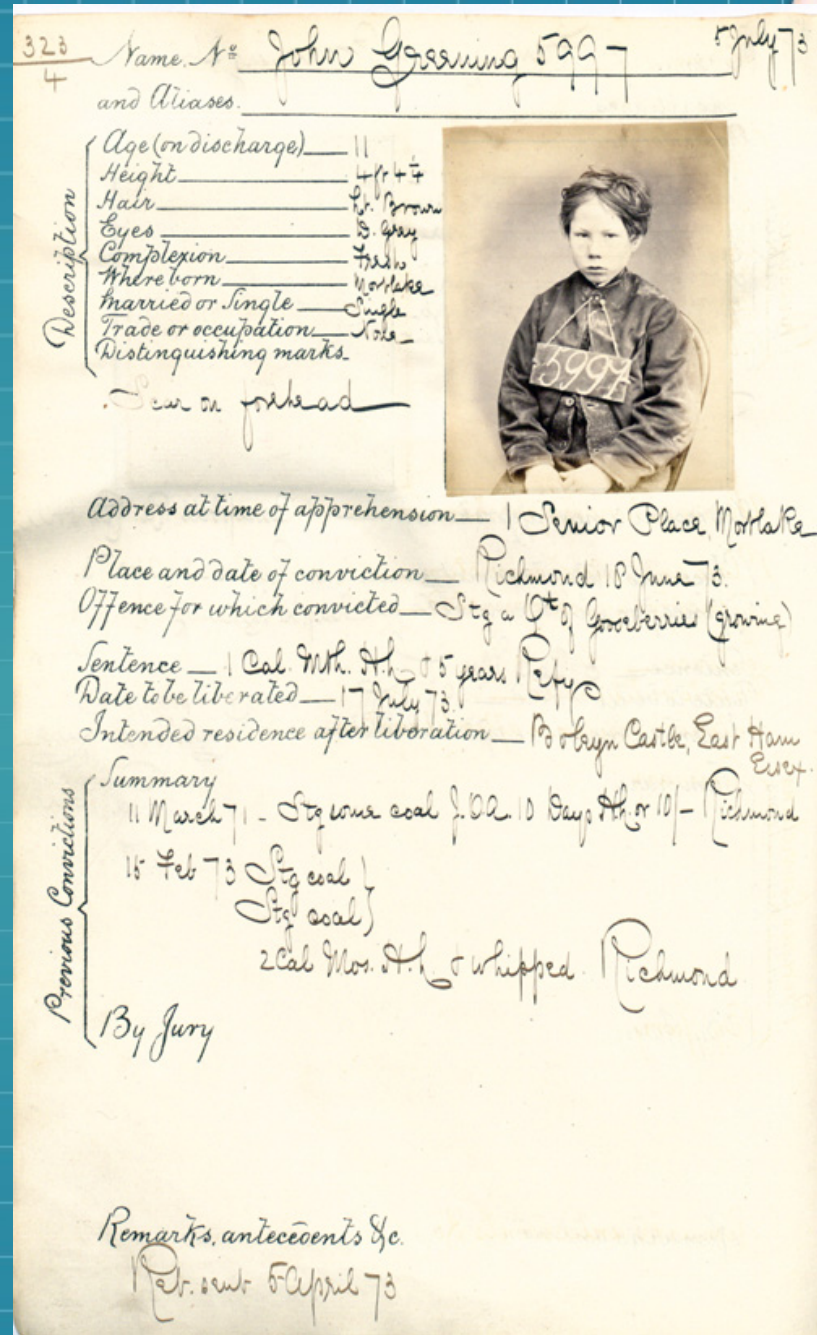 323
4
Name, No John Greening 5997 5 July 73
and Aliases.
Description
Age (on discharge) 11
Height 4 ft 4 1/4
Hair Lt. Brown
Eyes D. Grey
Complexion Fresh
Where born Mortlake
Married or Single Single
Trade or occupation None
Distinguishing marks.
Scar on forehead
5997
Address at time of apprehension 1 Senior Place, Mortlake
Place and date of conviction Richmond 18 June 73.
Offence for which convicted Stg a Qt of Gooseberries (growing)
Sentence 1 Cal. Mth. H.h & 5 years Refy
Date to be liberated 17 July 73.
Intended residence after liberation Boleyn Castle, East Ham
Essex.
Previous Convictions
Summary
11 March 71 - Stg some coal 10 Days H.h or 10/- Richmond
15 Feb 73 Stg coal }
Stg coal }
2 Cal Mos. H.h & whipped. Richmond
By Jury
Remarks, antecedents &c.
sent 5 April 73